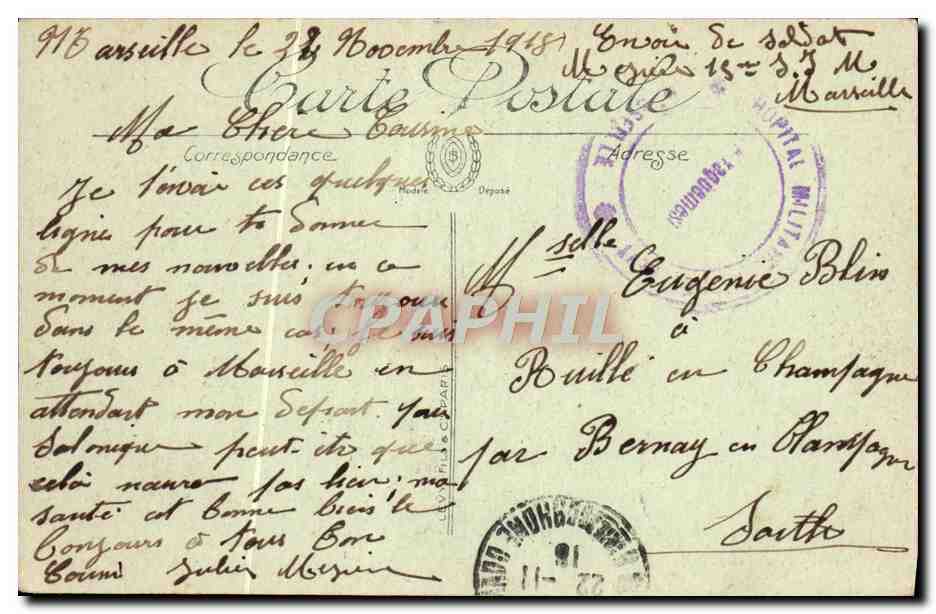 Marseille le 22 Novembre 1918
Envoie de soldat
15ème S I M
Marseille
Carte Postale
Ma Chère Cousine
Correspondance
Adresse
Modèle Déposé
HOPITAL MILITAIRE
Je t'envoi ces quelques
ligne pour te donner
de mes nouvelles. en ce
moment je suis toujour
dans le même cas, je suis
toujours à Marseille en
attendant mon depart pour
salonique peut-etr que
cela naura pas lieu. ma
santé est bonne bien le
bonjours à tous ton
Cousin Julien
Mselle Eugenie Blin
à
Ruillé en Champagne
par Bernay en Champagne
Sarthe
LEVY FILS & Cie PARIS
22 -11
18
CPAPHIL